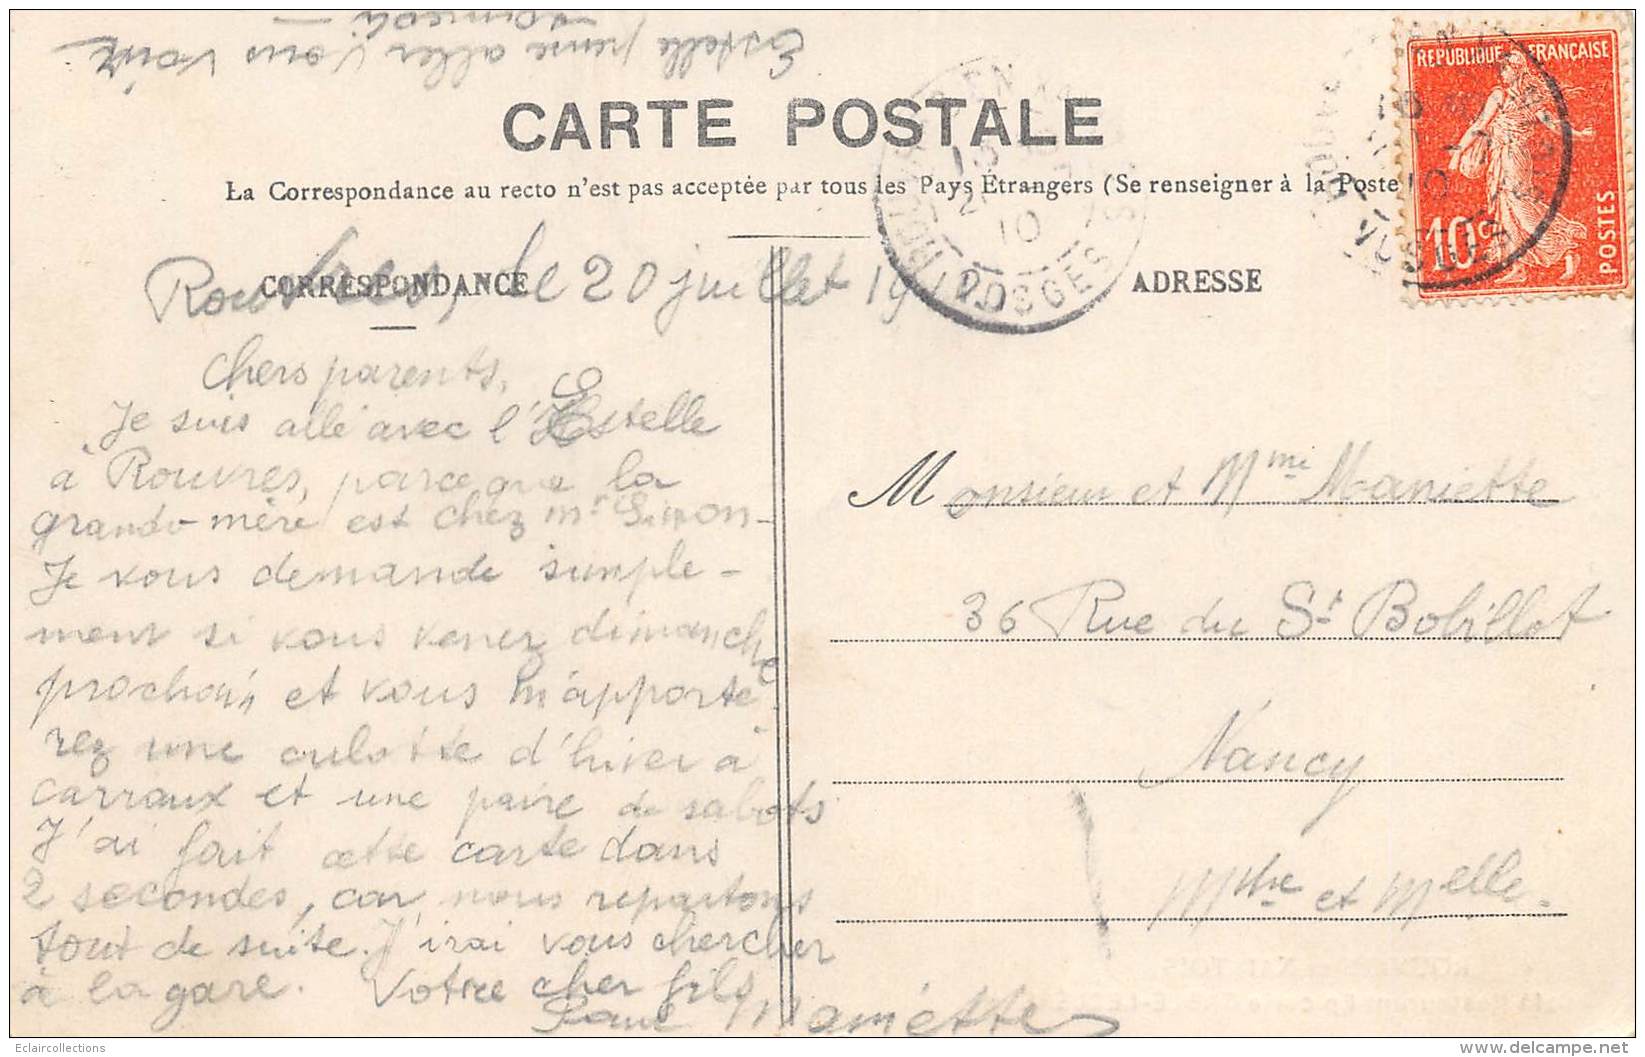 Estelle pense aller vous voir
samedi
CARTE POSTALE
La Correspondance au recto n'est pas acceptée par tous les Pays Étrangers (Se renseigner à la Poste
CORRESPONDANCE
ADRESSE
REPUBLIQUE FRANÇAISE
10c
POSTES
VOSGES
VOSGES
Rouvres, le 20 juillet 1910
Chers parents,
Je suis allé avec l'Estelle
à Rouvres, parceque la
grand-mère est chez mr Simon-
Je vous demande simple-
ment si vous venez dimanche
prochain et vous m'apporte-
rez une culotte d'hiver à
carraux et une paire de sabots
J'ai fait cette carte dans
2 secondes, car nous repartons
tout de suite. J'irai vous chercher
à la gare. Votre cher fils
Paul Maniette
Monsieur et Mme Maniette
36 Rue du St Bobillot
Nancy
Mthe et Melle.
Eclaircollections
delcampe.net